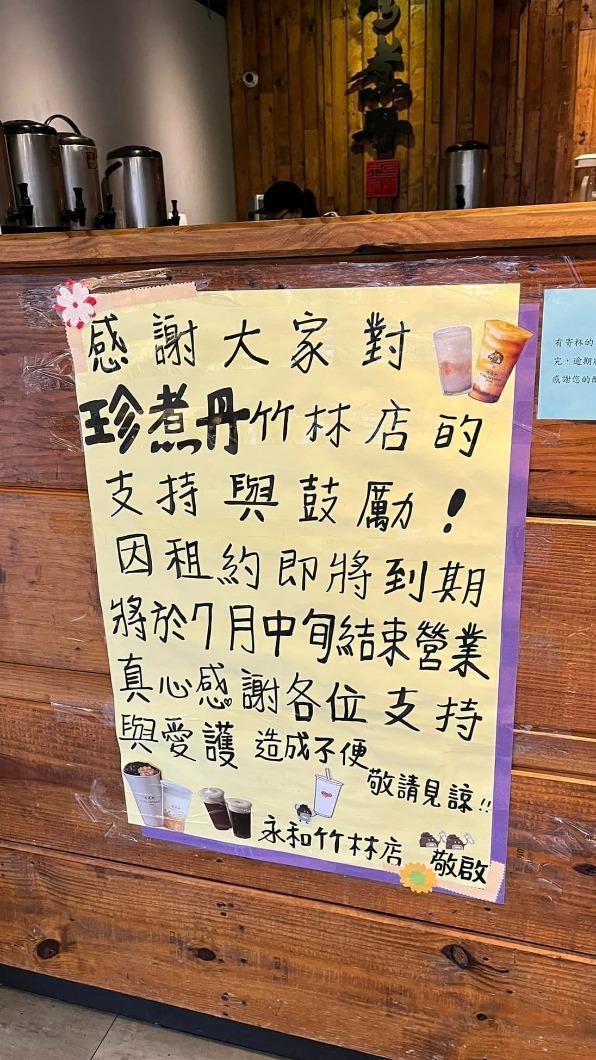 珍煮丹
感謝大家對
珍煮丹竹林店的
支持與鼓勵！
因租約即將到期
將於7月中旬結束營業
真心感謝各位支持
與愛護 造成不便
敬請見諒!!
永和竹林店 敬啟
有寄杯的
完，逾期
感謝您的